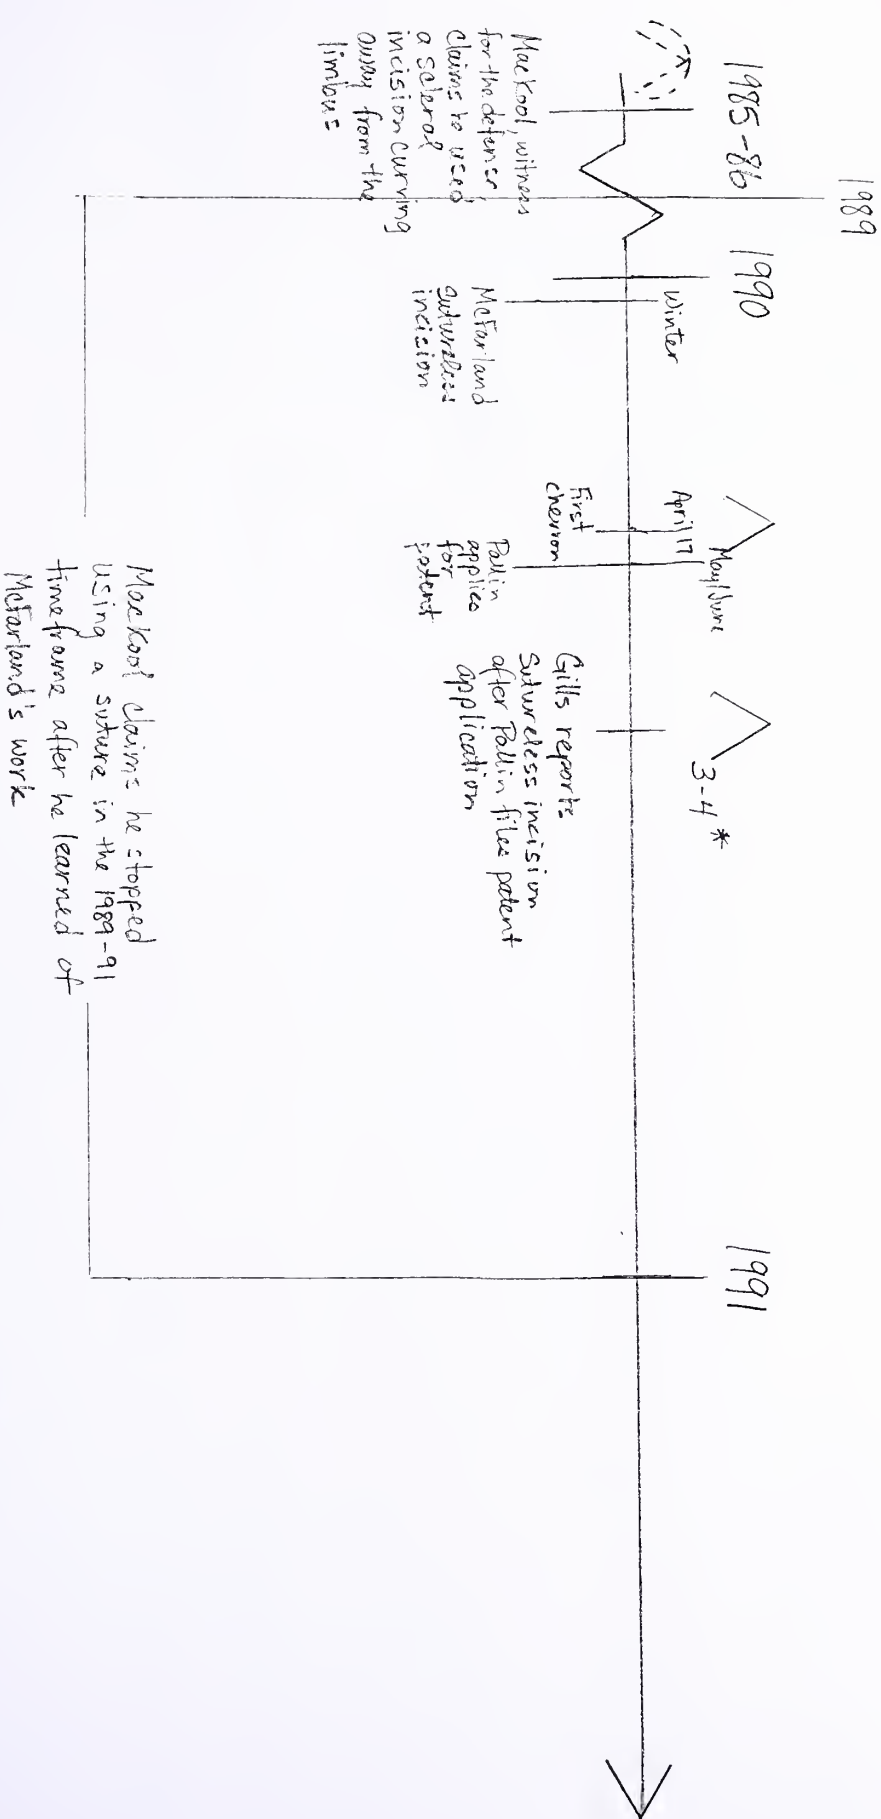 1989
1985-86
1990
1991
Winter
April 17
May/June
3-4 *
MacKool, witness
for the defense,
claims he used
a scleral
incision curving
away from the
limbus
McFarland
sutureless
incision
First
chevron
Pallin
applies
for
patent
Gills reports
sutureless incision
after Pallin files patent
application
MacKool claims he stopped
using a suture in the 1989-91
timeframe after he learned of
McFarland's work